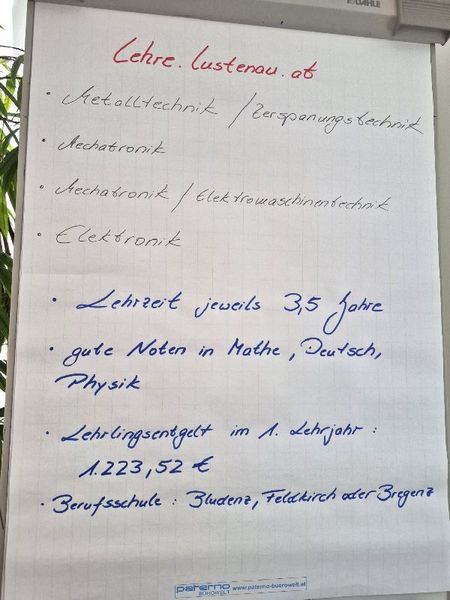 DAHLE
Lehre.lustenau.at
· Metalltechnik / Zerspanungstechnik
· Mechatronik
· Mechatronik / Elektromaschinentechnik
· Elektronik
· Lehrzeit jeweils 3,5 Jahre
· gute Noten in Mathe, Deutsch,
Physik
· Lehrlingsentgelt im 1. Lehrjahr :
1.223,52 €
· Berufsschule : Bludenz, Feldkirch oder Bregenz
paterno BÜROWELT www.paterno-buerowelt.at